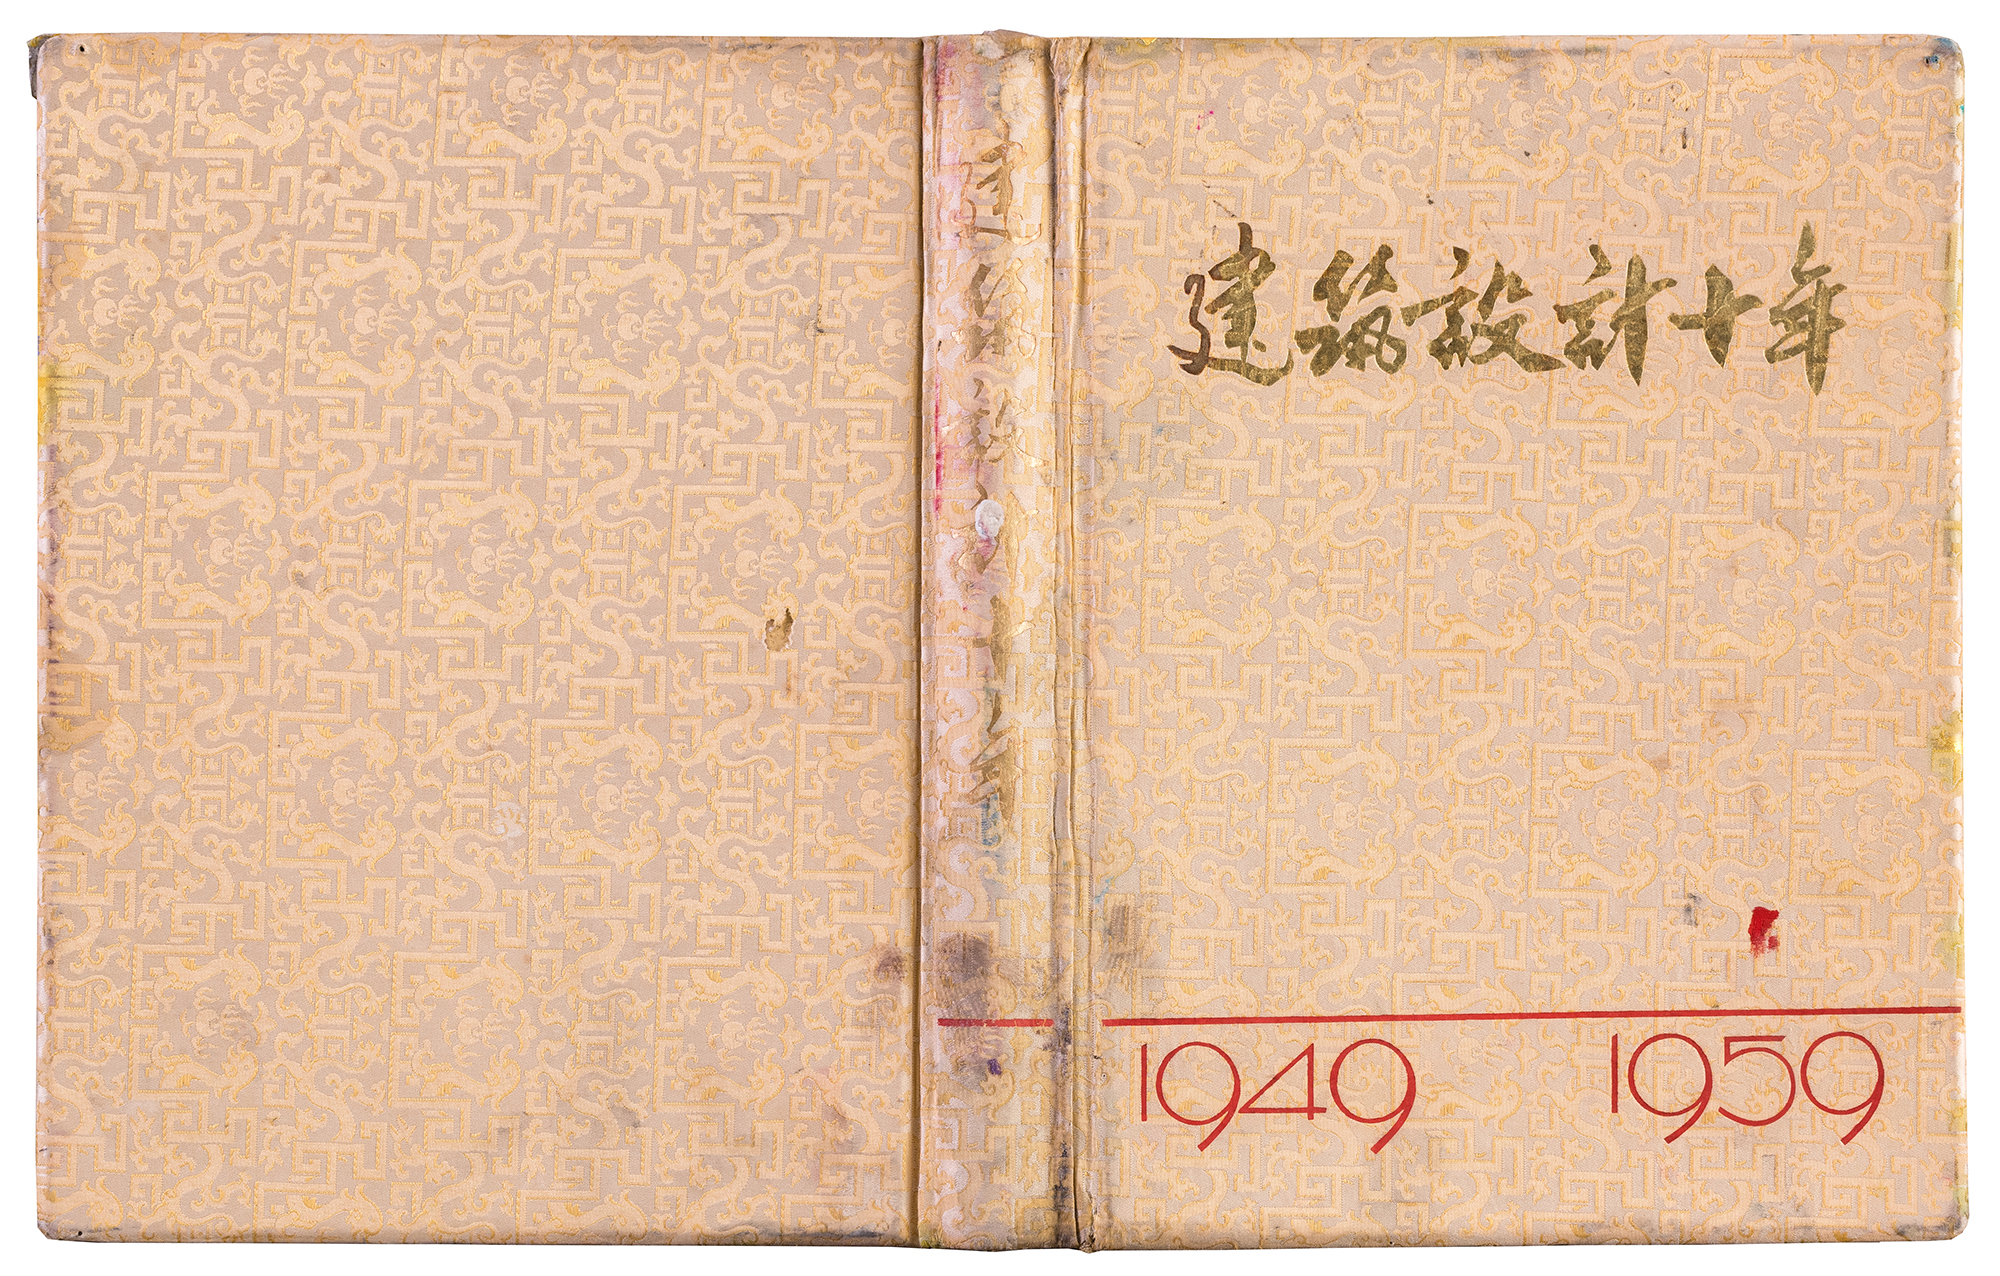 建筑設計十年
建筑設計十年
1949 1959